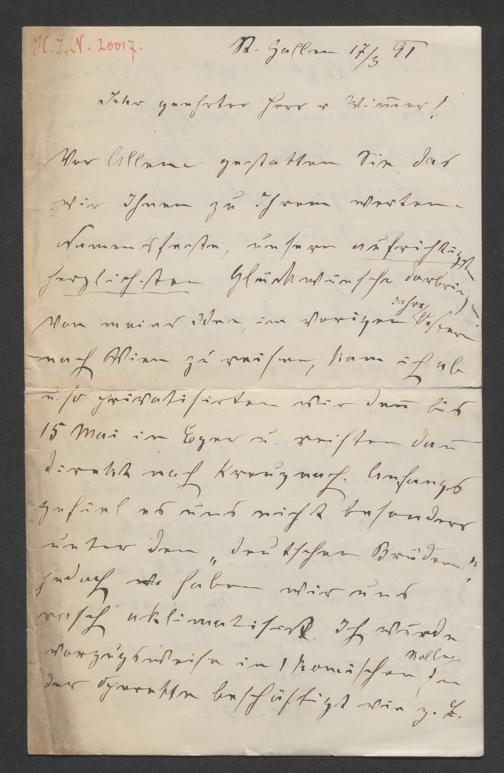 H.I.N. 20017.
St. Gallen 17/3 91
Sehr geehrter Herr v. Wimer!
Vor Allem gestatten Sie das
wir Ihnen zu Ihrem werten
Namensfeste, unsern aufrichtigsten
herzlichsten Glückwünsche darbringen
Von meiner Idee, im vorigen Jahre
nach Wien zu reisen, kam ich ab
u. so privatisirten wir den̄ bis
15 Mai in Eger u. reisten dan̄
direkt nach Kreuznach. Anfangs
gefiel es uns nicht besonders
unter den „deutschen Brüdern",
jedoch haben wir uns
rasch aklimatisirt. Ich wurde
vorzugsweise in komischen Rollen
der Operette beschäftigt wie z. B.